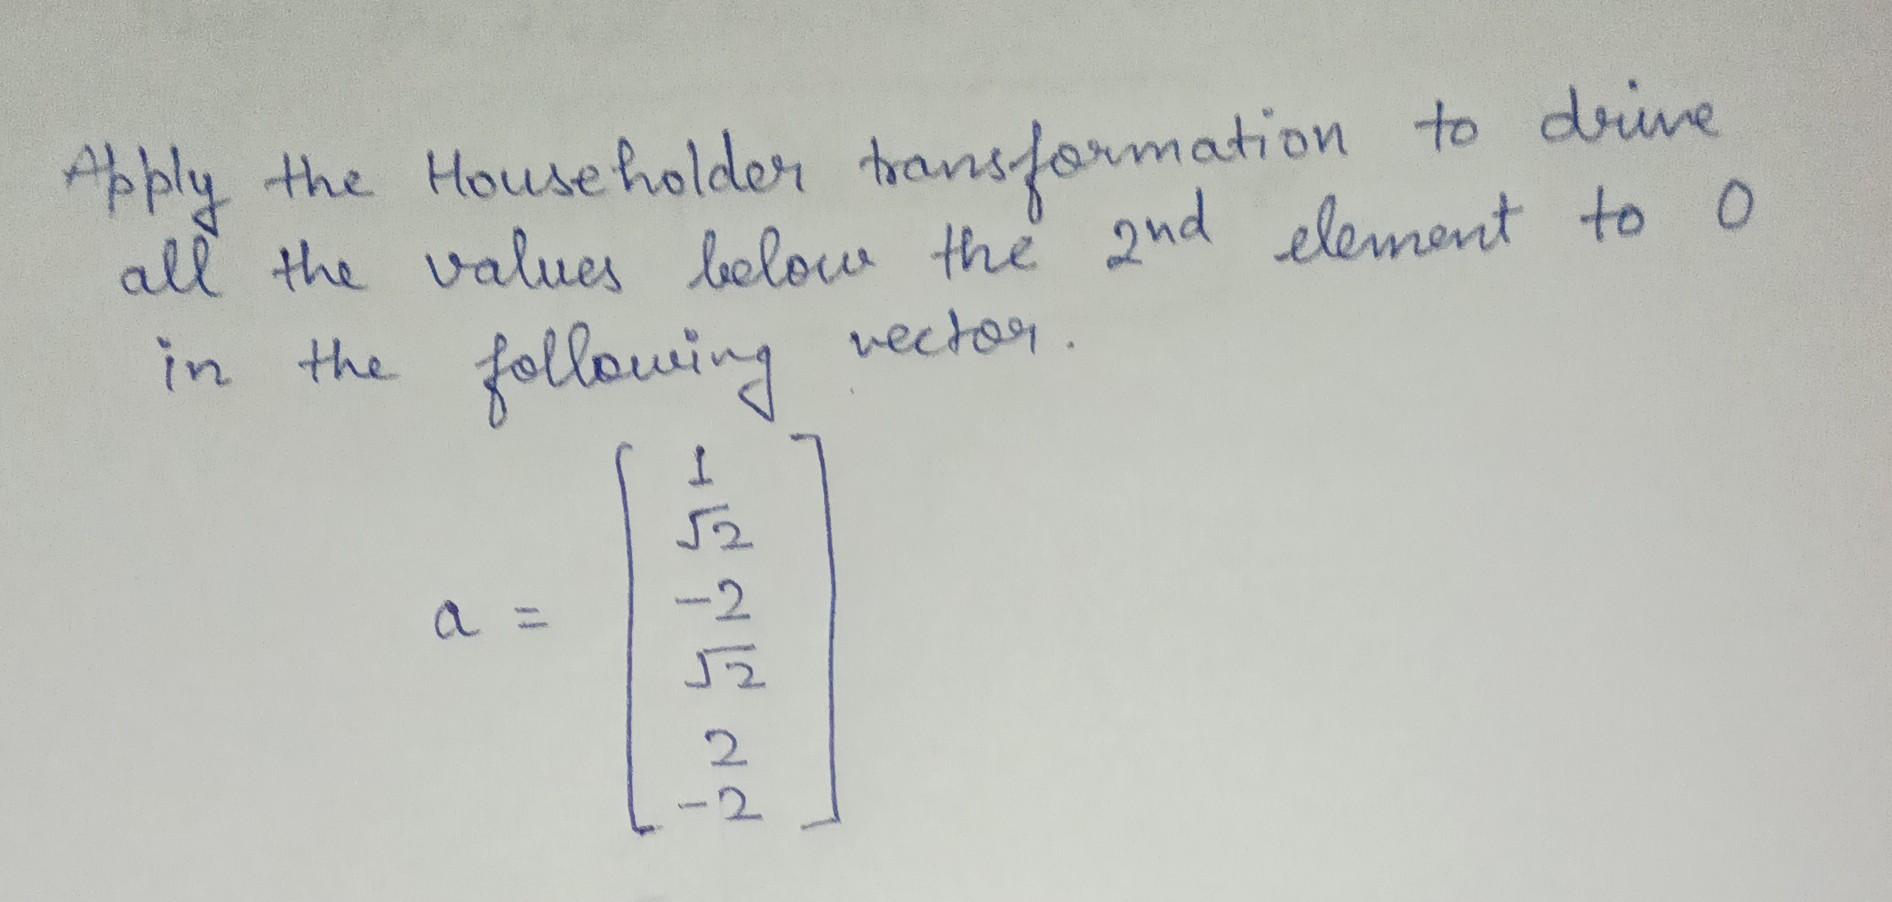 Apply the Householder transformation to drive
all the values below the 2nd element to 0
in the following vector.
a = [
1
√2
-2
√2
2
-2
]